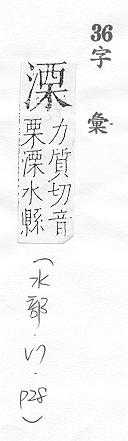 36字彙
溧
力質切音
栗溧水縣
(水部.17.p28)